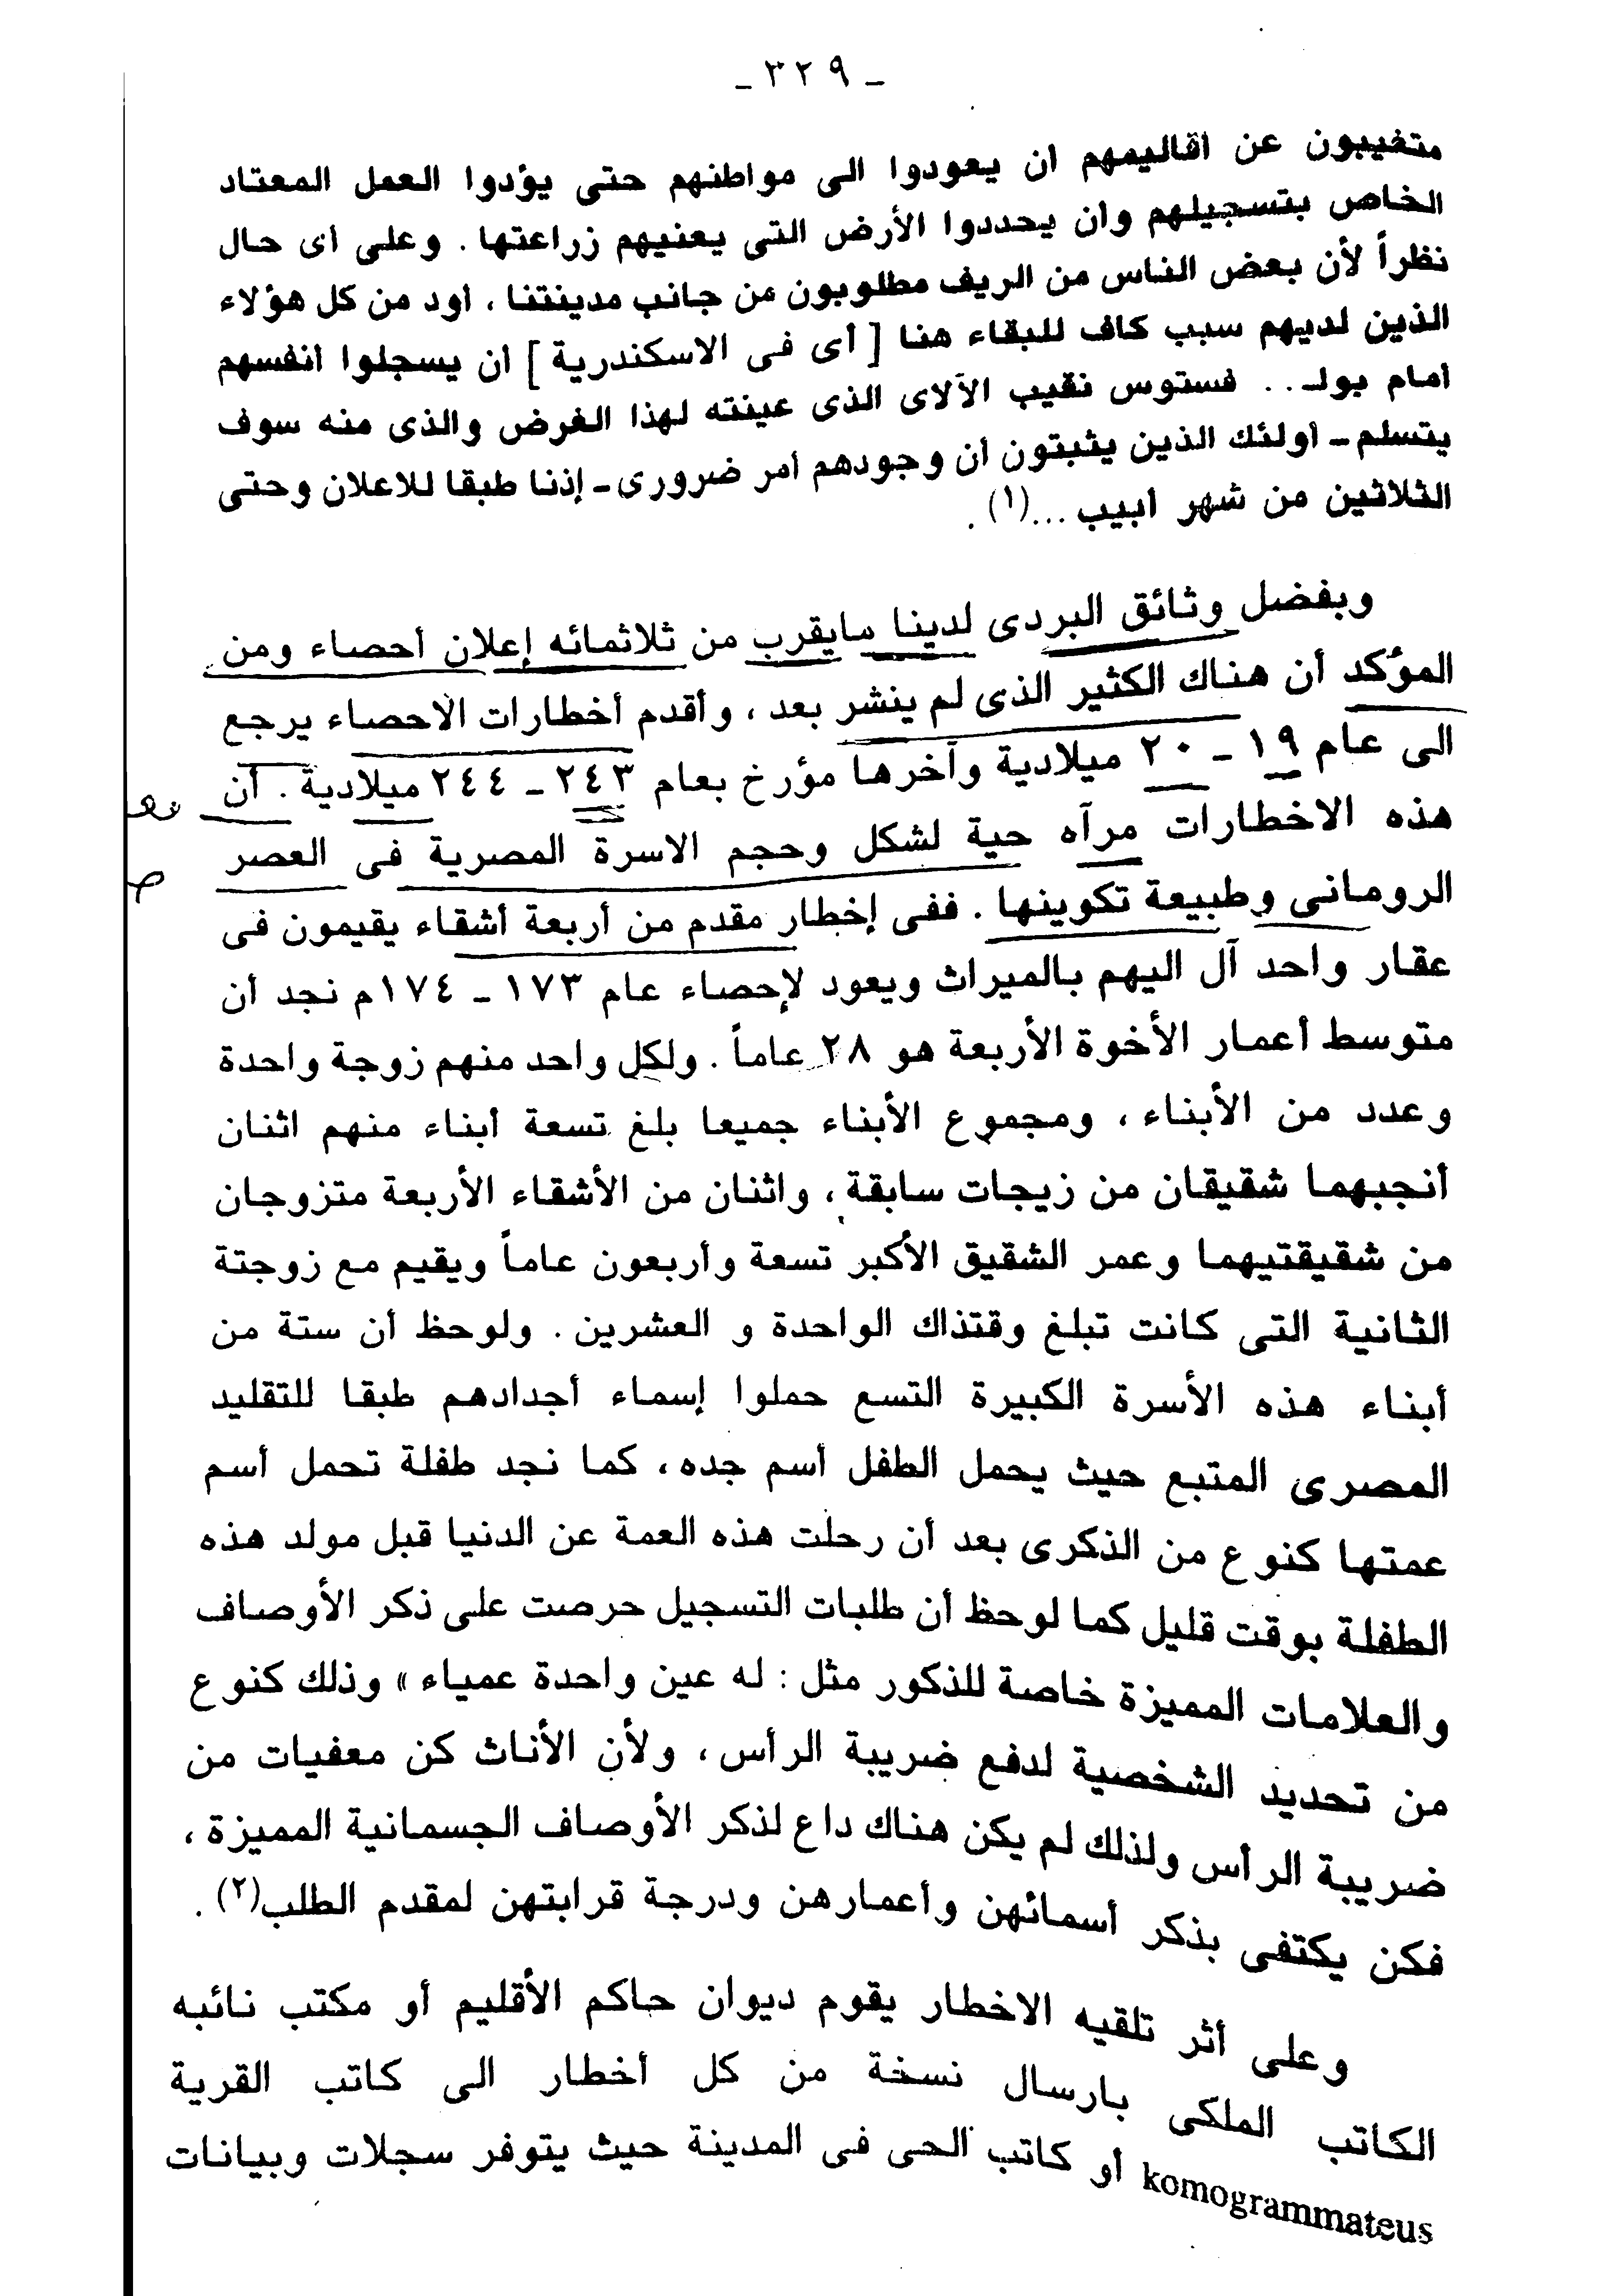 ـ ٣٢٩ ـ
متغيبون عن اقاليمهم أن يعودوا الى مواطنهم حتى يؤدوا العمل المعتاد
الخاص بتسجيلهم وأن يحددوا الأرض التى يعنيهم زراعتها . وعلى أى حال
نظراً لأن بعض الناس من الريف مطلوبون من جانب مدينتنا ، أود من كل هؤلاء
الذين لديهم سبب كاف للبقاء هنا [ أى فى الاسكندرية ] أن يسجلوا أنفسهم
أمام بولـ . . فستوس نقيب الآلاى الذى عينته لهذا الغرض والذى منه سوف
يتسلم ـ أولئك الذين يثبتون أن وجودهم أمر ضرورى ـ إذنا طبقا للاعلان وحتى
الثلاثين من شهر أبيب ...(١) .
وبفضل وثائق البردى لدينا مايقرب من ثلاثمائه إعلان أحصاء ومن
المؤكد أن هناك الكثير الذى لم ينشر بعد ، وأقدم أخطارات الاحصاء يرجع
الى عام ١٩ ـ ٢٠ ميلادية وآخرها مؤرخ بعام ٢٤٣ ـ ٢٤٤ ميلادية . أن
هذه الاخطارات مرآه حية لشكل وحجم الاسرة المصرية فى العصر
الرومانى وطبيعة تكوينها . ففى إخطار مقدم من أربعة أشقاء يقيمون فى
عقار واحد آل اليهم بالميراث ويعود لإحصاء عام ١٧٣ ـ ١٧٤م نجد أن
متوسط أعمار الأخوة الأربعة هو ٢٨ عاماً . ولكل واحد منهم زوجة واحدة
وعدد من الأبناء ، ومجموع الأبناء جميعا بلغ تسعة أبناء منهم اثنان
أنجبهما شقيقان من زيجات سابقة ، واثنان من الأشقاء الأربعة متزوجان
من شقيقتيهما وعمر الشقيق الأكبر تسعة وأربعون عاماً ويقيم مع زوجتة
الثانية التى كانت تبلغ وقتذاك الواحدة و العشرين . ولوحظ أن ستة من
أبناء هذه الأسرة الكبيرة التسع حملوا إسماء أجدادهم طبقا للتقليد
المصرى المتبع حيث يحمل الطفل أسم جده ، كما نجد طفلة تحمل أسم
عمتها كنوع من الذكرى بعد أن رحلت هذه العمة عن الدنيا قبل مولد هذه
الطفلة بوقت قليل كما لوحظ أن طلبات التسجيل حرصت على ذكر الأوصاف
والعلامات المميزة خاصة للذكور مثل : له عين واحدة عمياء » وذلك كنوع
من تحديد الشخصية لدفع ضريبة الرأس ، ولأن الأناث كن معفيات من
ضريبة الرأس ولذلك لم يكن هناك داع لذكر الأوصاف الجسمانية المميزة ،
فكن يكتفى بذكر أسمائهن وأعمارهن ودرجة قرابتهن لمقدم الطلب(٢) .
وعلى أثر تلقيه الاخطار يقوم ديوان حاكم الأقليم أو مكتب نائبه
الكاتب الملكى بارسال نسخة من كل أخطار الى كاتب القرية
komogrammateus أو كاتب الحى فى المدينة حيث يتوفر سجلات وبيانات